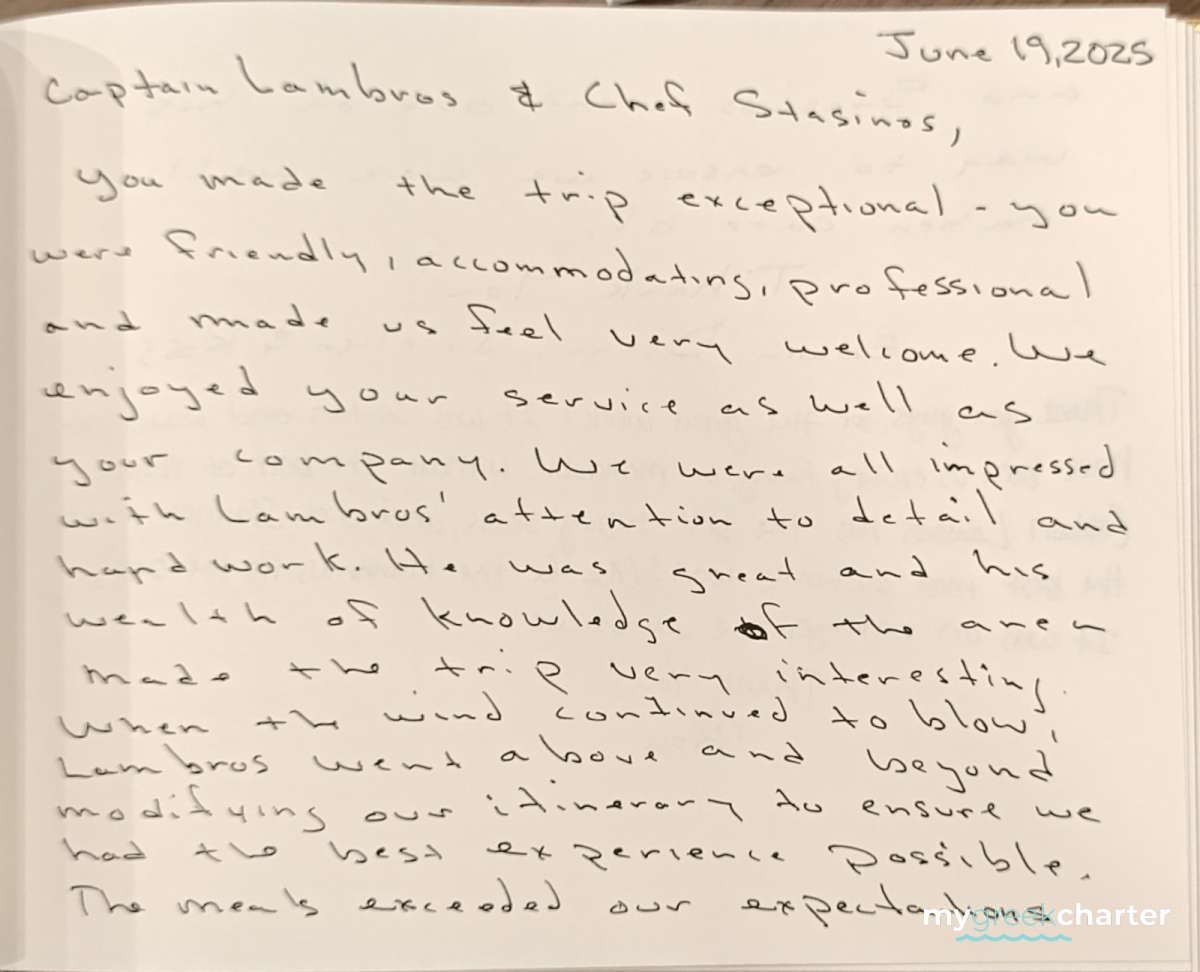 June 19, 2025
Captain Lambros & Chef Stasinos,
You made the trip exceptional - you
were friendly, accommodating, professional
and made us feel very welcome. We
enjoyed your service as well as
your company. We were all impressed
with Lambros' attention to detail and
hard work. He was great and his
wealth of knowledge of the area
made the trip very interesting.
When the wind continued to blow,
Lambros went above and beyond
modifying our itinerary to ensure we
had the best experience possible.
The meals exceeded our expectations
mygreekcharter